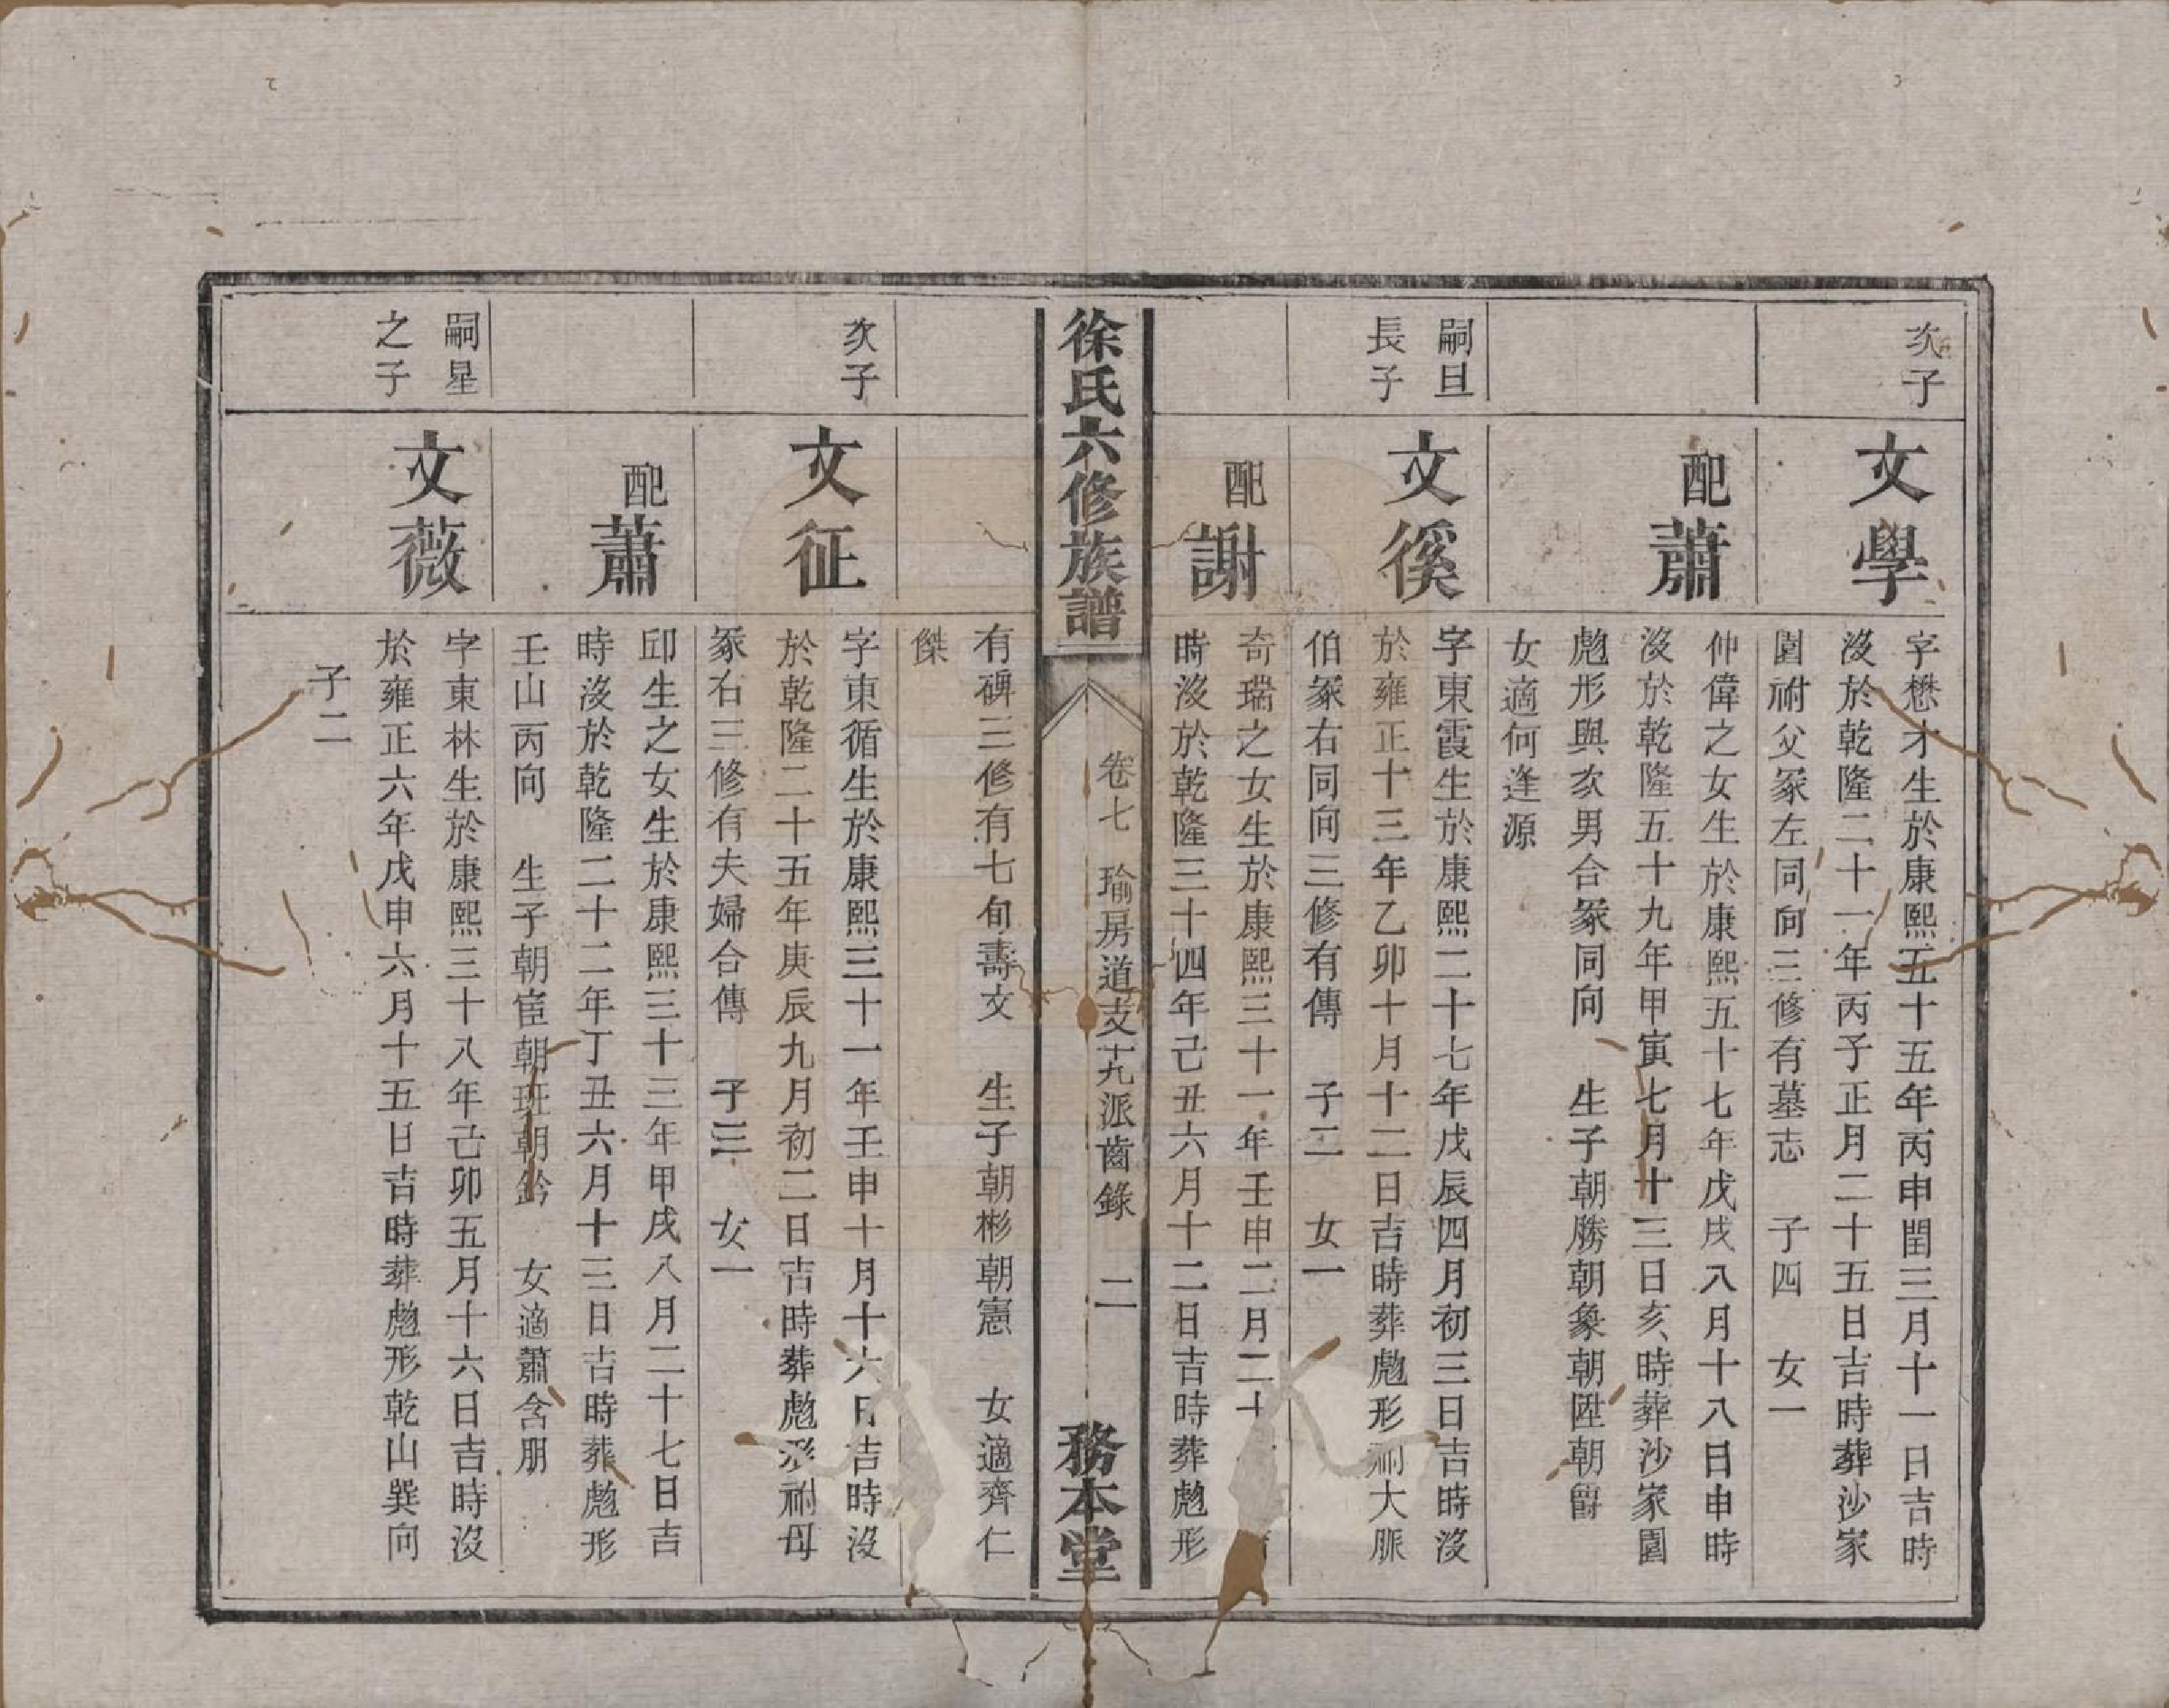 次子
文學
字懋才生於康熙五十五年丙申閏三月十一日吉時
沒於乾隆二十一年丙子正月二十五日吉時葬沙家
園祔父冢左同向三修有墓志　子四　女一
配蕭
仲偉之女生於康熙五十七年戊戌八月十八日申時
沒於乾隆五十九年甲寅七月十三日亥時葬沙家園
彪形與次男合冢同向　生子朝勝朝象朝陞朝爵
女適何逢源
嗣旦
長子
文徯
字東霞生於康熙二十七年戊辰四月初三日吉時沒
於雍正十三年乙卯十月十二日吉時葬彪形祔大脈
伯冢右同向三修有傳　子二　女一
配謝
奇瑞之女生於康熙三十一年壬申二月二十
時沒於乾隆三十四年己丑六月十二日吉時葬彪形
徐氏六修族譜
卷七　瑜房道支十九派齒錄　二
務本堂
有碑三修有七旬壽文　生子朝彬朝憲　女適齊仁
傑
次子
文征
字東循生於康熙三十一年壬申十月十六日吉時沒
於乾隆二十五年庚辰九月初二日吉時葬彪形祔母
冢右三修有夫婦合傳　子三　女一
配蕭
邱生之女生於康熙三十三年甲戌八月二十七日吉
時沒於乾隆二十二年丁丑六月十三日吉時葬彪形
壬山丙向　生子朝宦朝班朝鈐　女適蕭含朋
嗣星
之子
文薇
字東林生於康熙三十八年己卯五月十六日吉時沒
於雍正六年戊申六月十五日吉時葬彪形乾山巽向
子二